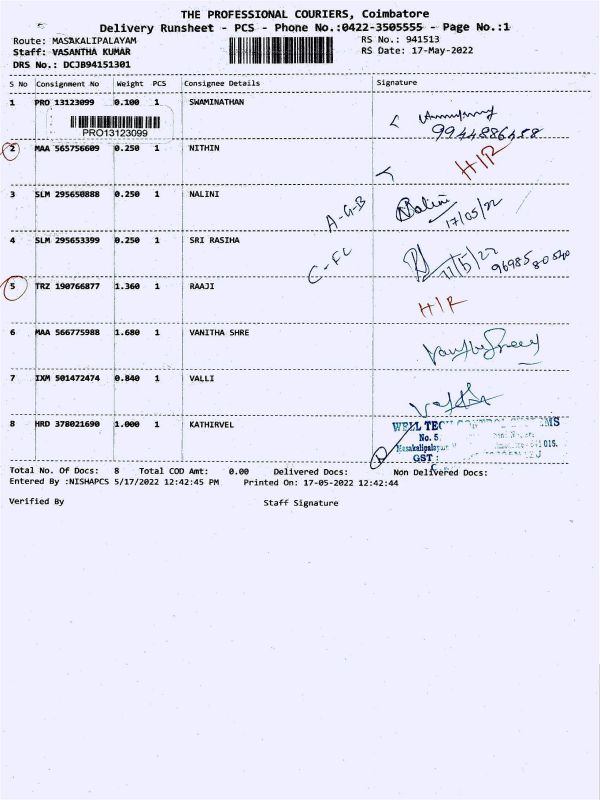 THE PROFESSIONAL COURIERS, Coimbatore
Delivery Runsheet - PCS - Phone No.:0422-3505555 - Page No.:1
Route: MASAKALIPALAYAM RS No.: 941513
Staff: VASANTHA KUMAR RS Date: 17-May-2022
DRS No.: DCJB94151301
S No Consignment No Weight PCS Consignee Details Signature
1 PRO 13123099 0.100 1 SWAMINATHAN
PRO13123099 9944886488
2 MAA 565756609 0.250 1 NITHIN H/R
3 SLM 295650888 0.250 1 NALINI A-G-B Nalini 17/05/22
4 SLM 295653399 0.250 1 SRI RASIHA C-FL
5 TRZ 190766877 1.360 1 RAAJI H/R
6 MAA 566775988 1.680 1 VANITHA SHRE
7 IXM 501472474 0.840 1 VALLI
8 HRD 378021690 1.000 1 KATHIRVEL WELL
No. 5,
GST :
Total No. Of Docs: 8 Total COD Amt: 0.00 Delivered Docs: Non Delivered Docs:
Entered By :NISHAPCS 5/17/2022 12:42:45 PM Printed On: 17-05-2022 12:42:44
Verified By Staff Signature